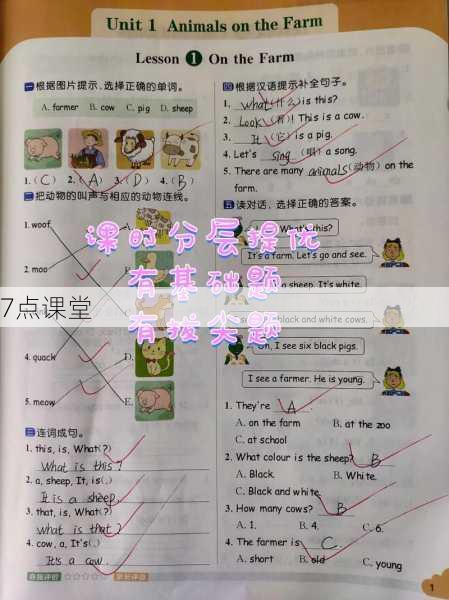 Unit 1 Animals on the Farm
Lesson 1 On the Farm
一 根据图片提示,选择正确的单词。
A. farmer B. cow C. pig D. sheep
1. (C) 2. (A) 3. (D) 4. (B)
二 把动物的叫声与相应的动物连线。
1. woof
2. moo
4. quack
D.
5. meow
E.
三 连词成句。
1. this, is, What(?)
What is this?
2. a, sheep, It, is(.)
It is a sheep.
3. that, is, What(?)
what is that?
4. cow, a, It's(.)
It's a cow.
四 根据汉语提示补全句子。
1. what(什么) is this?
2. Look(看)! This is a cow.
3. It(它) is a pig.
4. Let's sing(唱) a song.
5. There are many animals(动物) on the
farm.
五 读对话,选择正确的答案。
What's this?
It's a farm. Let's go and see.
a sheep. It's white.
black and white cows.
Oh, I see six black pigs.
I see a farmer. He is young.
1. They're A.
A. on the farm B. at the zoo
C. at school
2. What colour is the sheep? B
A. Black. B. White.
C. Black and white.
3. How many cows? B
A. 1. B. 4. C. 6.
4. The farmer is C.
A. short B. old C. young
1
课时分层提优
有基础题
有拔尖题
7点课堂